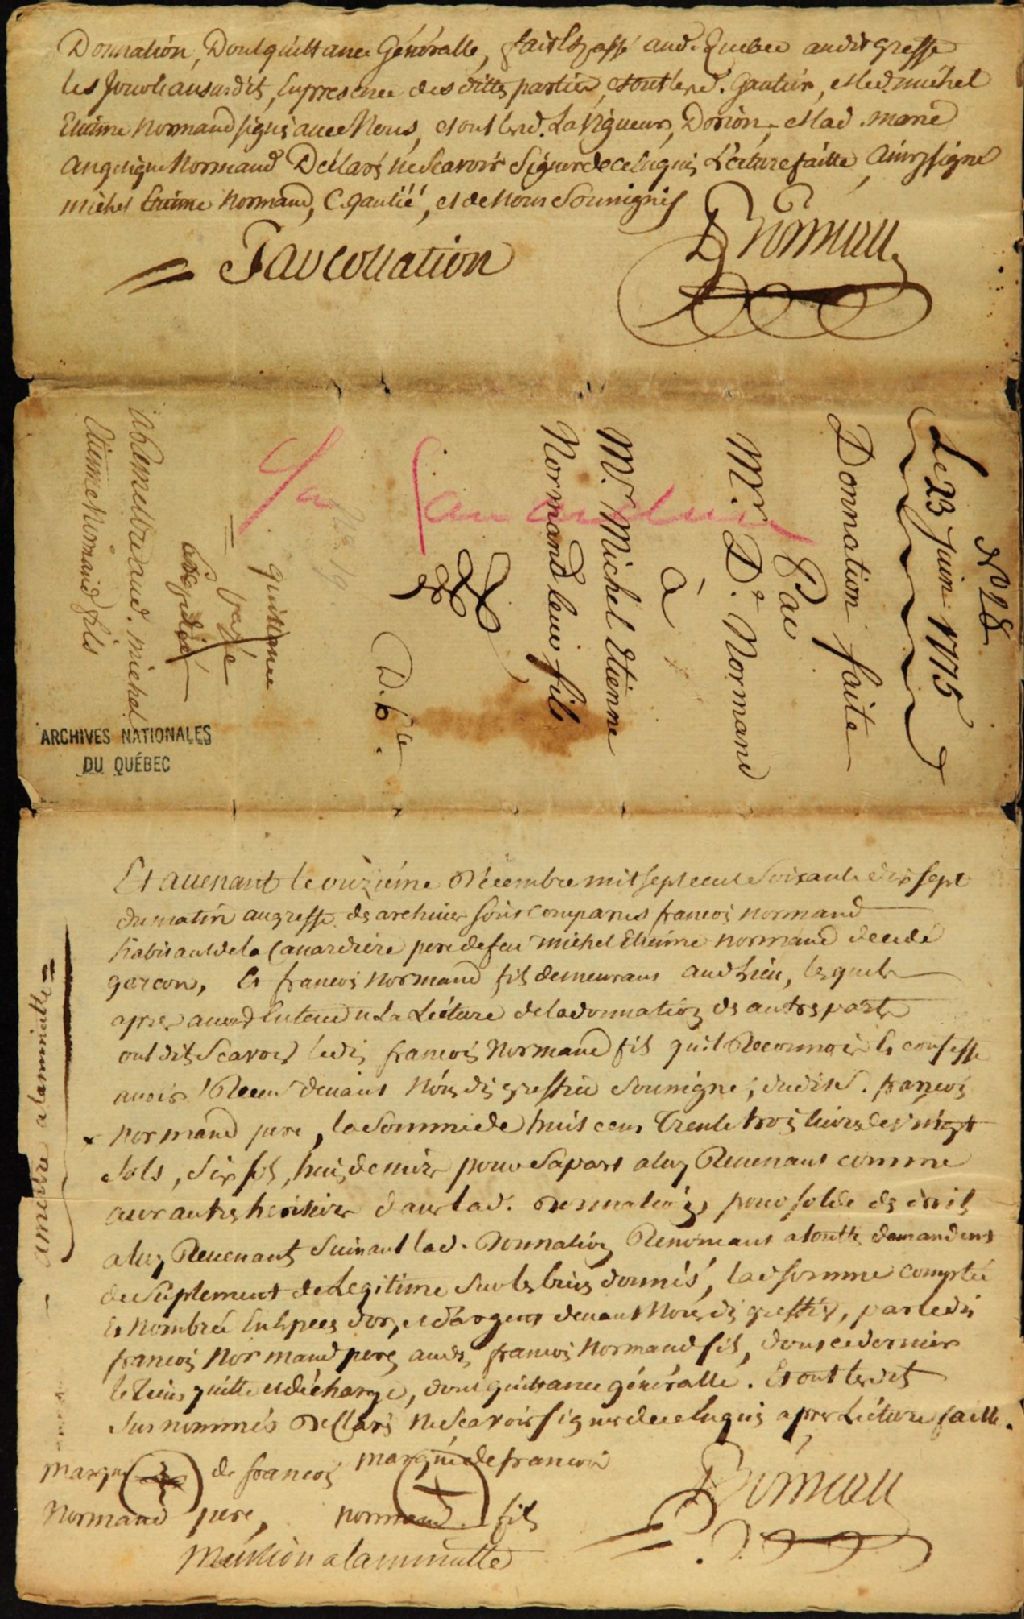 Donnation, Dont quittance Généralle, fait & passé aud. Quebec audit greffe
les Jour & an susdits, En presence des dittes parties, & ont led. Gautier, et led. michel
Etiénne Normand signé avec Nous, et ont led. La Vigueur, Dorion, et lad. marie
angelique Normand Déclaré ne Scavoir Signer de ce Enquis, Lecture faitte, ainsy signé
michel Etiénne Normand, C. gautié, et de Nous Soussignés
Pour Collation
No 28
Le 23 Juin 1775
Donnation faite
Par
Mr. D. Normand
à
Mr. Michel Etienne
Normand leur fils
Canardière
D. Ce
quittance
passé
Expédiée
a Remettre aud. michel
Etienne Normand fils
ARCHIVES NATIONALES
DU QUÉBEC
Et avenant le onziéme Décembre mil sept cent Soixante dix sept
du matin au greffe des archives sont Comparus francois Normand
habitant de la Canardiere pere de feu michel Etienne Normand decedé
garcon, Et francois Normand fils demeurant aud. Lieu, lesquels
apres avoir Entendu La Lécture de la donnation des autres parts
ont dit Scavoir ledit francois Normand fils qu'il Reconnoit & confesse
avoir Receu devant Nous dit greffier Soussigné, dudit S. francois
Normand pere, la Somme de huit cens Trente trois livres de vingt
Sols, Six sols, huit deniers pour Sa part a luy Revenant comme
aux autres heritiers dans lad. Donnation, pour solde des droits
a luy Revenant Suivant lad. Donnation, Renoncant a toutte demande
de Suplement de Legitime sur les biens donnés, lad. somme comptée
Et Nombrée En Espèces d'or, et d'argent devant Nous dit greffier, par ledit
francois Normand pere, aud. francois Normand fils, dont ce dernier
le Tient quitte et décharge, dont quittance généralle. Et ont lesdits
Susnommés Déclaré Ne Scavoir signer de ce Enquis apres Lécture faitte.
marque de francois
Normand pere,
marque de francois
normand fils
Mention a la minutte
a mettre a la minutte